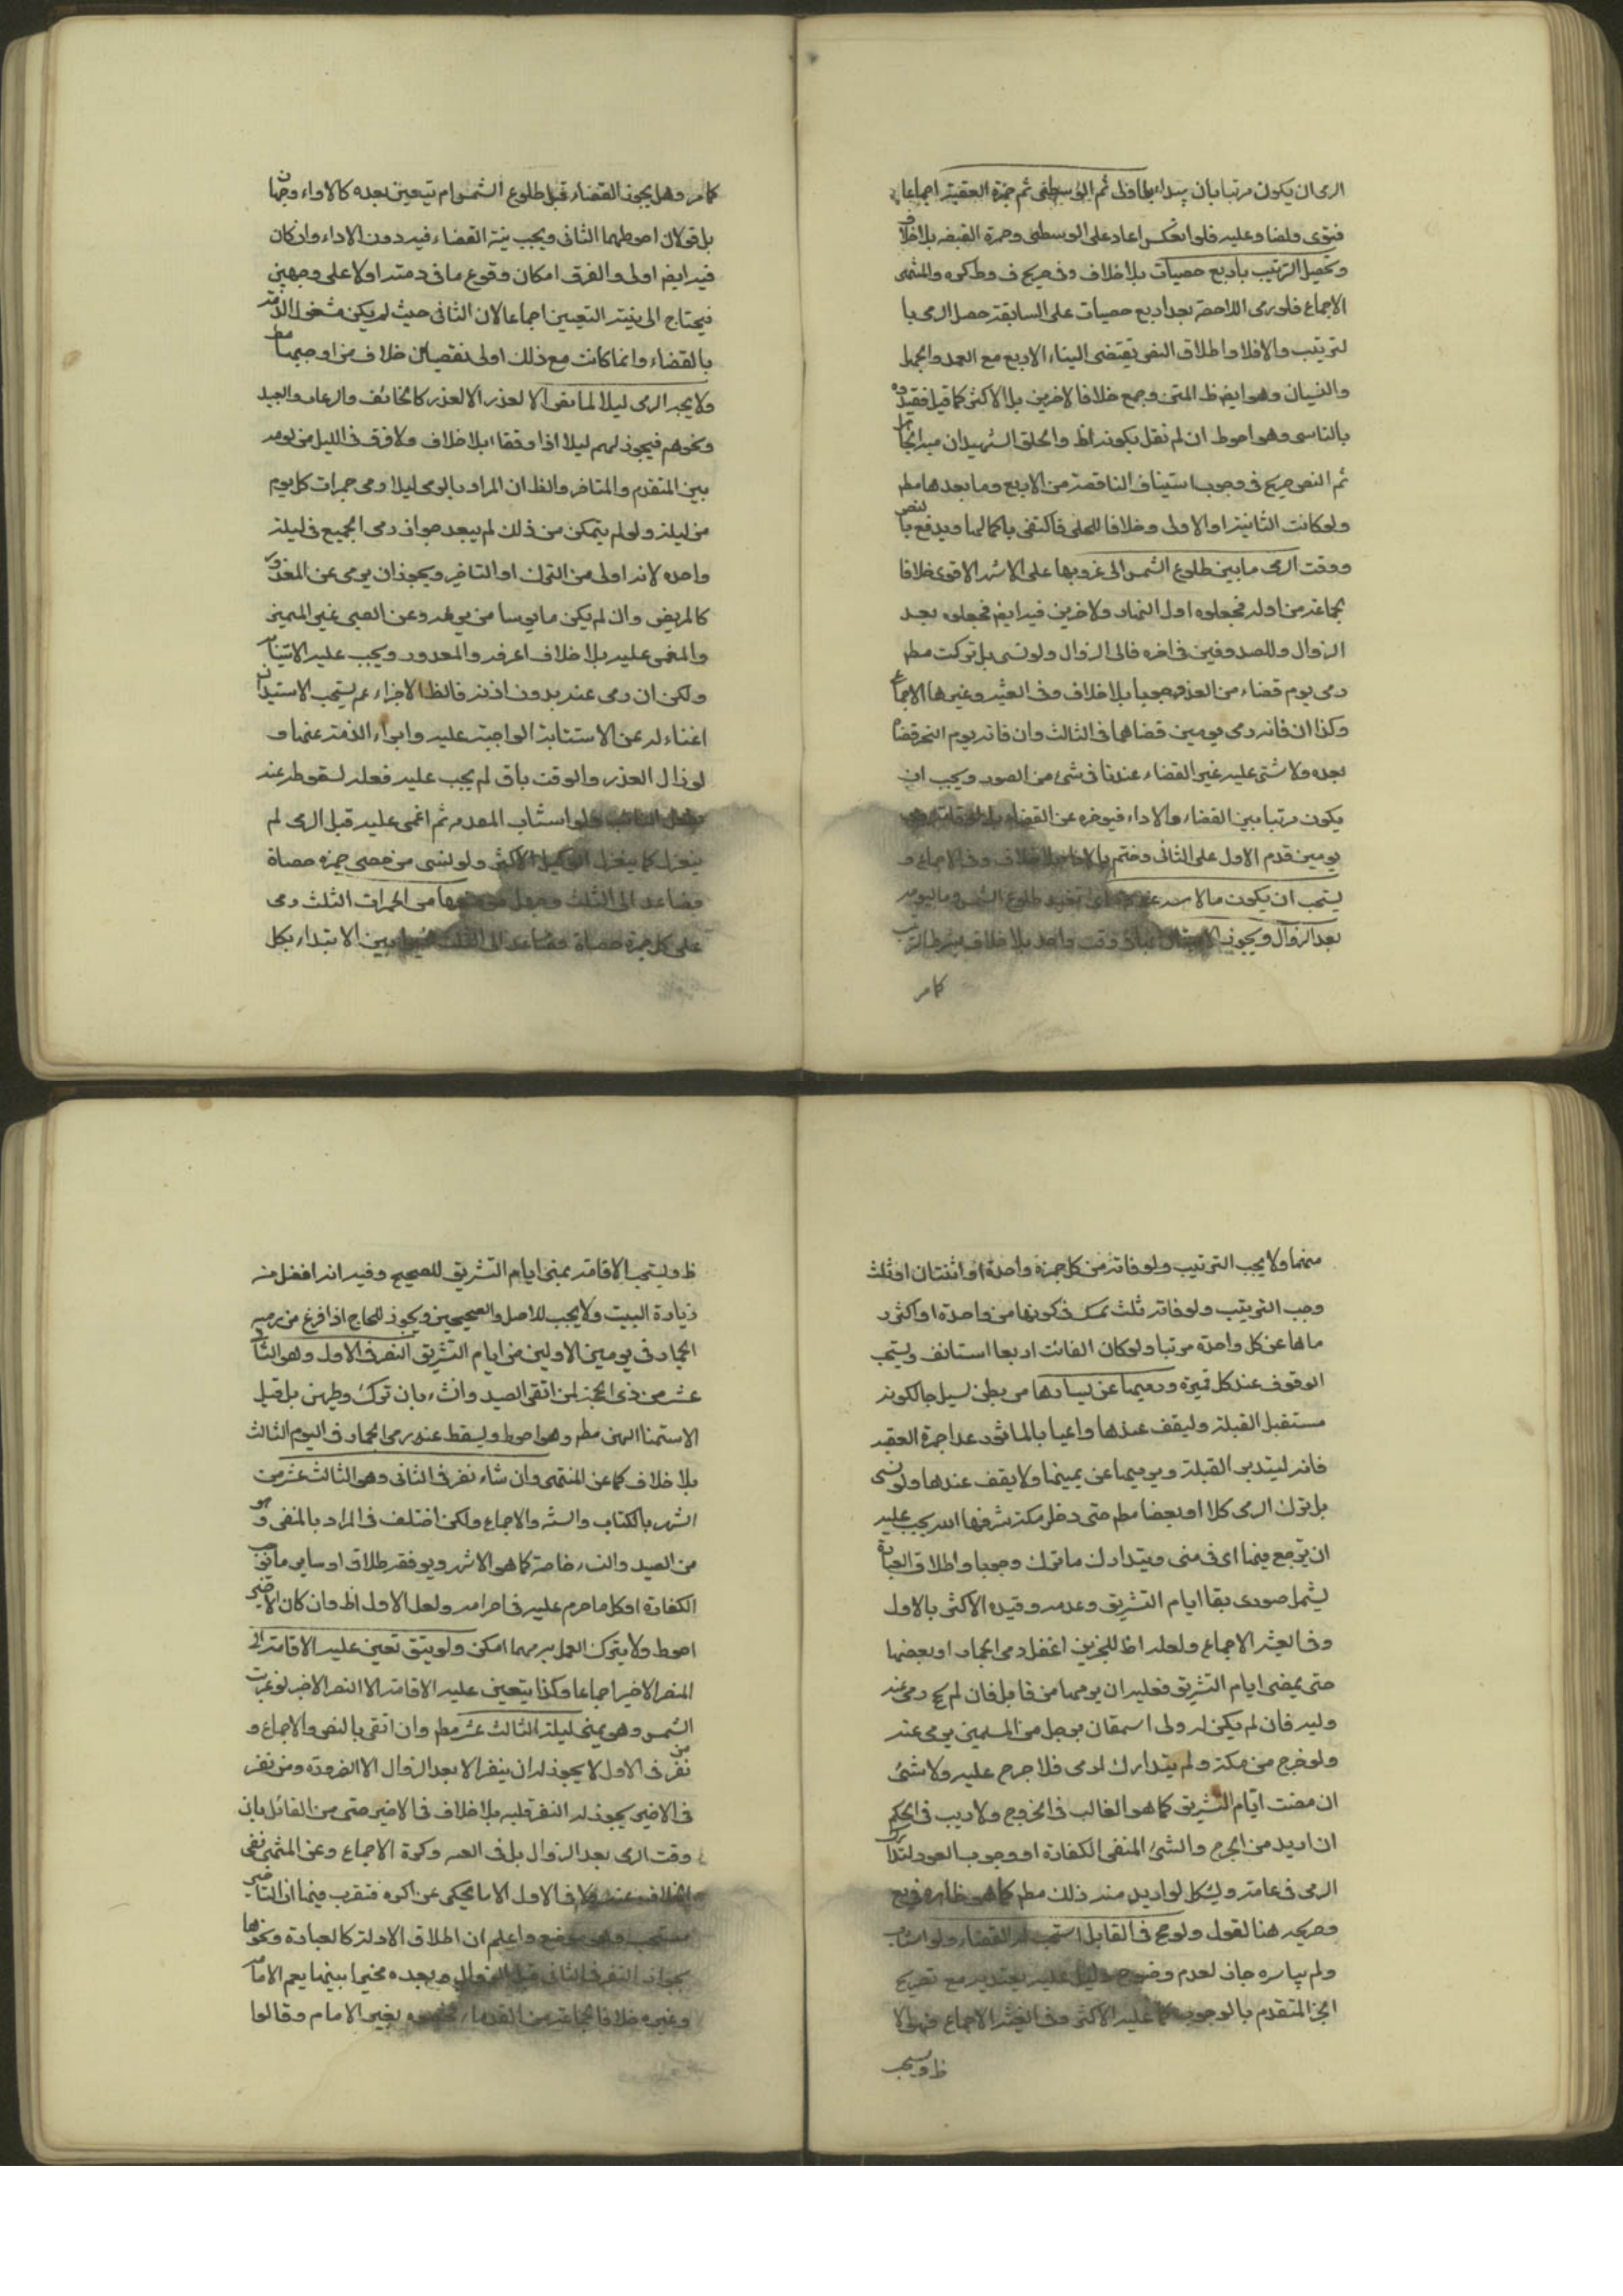 الرمى ان يكون مرتبا بان يبدء بالاولى ثم الوسطى ثم جمرة العقبة اجماعا
فتوى ونصا وعليه فلو انعكس اعاد على الوسطى وجمرة العقبة بلا خلاف
وتحصيل الترتيب باربع حصيات بلا خلاف وفى صريح ف وط كره والمنتهى
الاجماع فلو رمى اللاحقة بعد اربع حصيات على السابقة حصل الرمى با
لترتيب والا فلا واطلاق النص يقتضى البناء الاربع مع العمد والجهل
والنسيان وهو ايضا ظ المتن وجمع خلافا لاخرين بل الاكثر كما قيل فقيدوه
بالناسى وهو احوط ان لم نقل بكونه اظ والحق الشهيدان به الجاهل
ثم النص صريح فى وجوب استيناف الناقصة من الاربع وما بعدها مطم
ولو كانت الثانية او الاولى وخلافا للحلى فاكتفى باكمالها ويدفع بالنص
ووقت الرمى ما بين طلوع الشمس الى غروبها على الاشهر الاقوى خلافا
لجماعة من اوله فجعلوه اول النهار ولاخرين فيه ايضا فجعلوه بعد
الزوال وللصدوقين فى اخره فالى الزوال ولو نسى بل تركت مطم
رمى يوم قضاه من الغد وجوبا بلا خلاف وفى الغنية وغيرها الاجماع
وكذا ان فاته رمى يومين قضاهما فى الثالث وان فاته يوم النحر قضاه
بعده ولا شئ عليه غير القضاء عندنا فى شئ من الصور ويجب ان
يكون مرتبا بين القضاء والاداء فيؤخره عن القضاء
يومين قدم الاول على الثانى وختم بالاداء بلا خلاف وفى الاجماع و
يستحب ان يكون ما لامسه بعيد طلوع الشمس وما ليومه
بعد الزوال ويجوز فى وقت واحد بلا خلاف بشرط الترتيب
كما مر
كما مر وهل يجوز القضاء قبل طلوع الشمس ام يتعين بعده كالاداء وجهان
بل قولان احوطهما الثانى ويجب نية القضاء فيه دون الاداء وان كان
فيه ايضا اولى والفرق امكان وقوع ما فى ذمته اولا على وجهين
فيحتاج الى نية التعيين اجماعا لان الثانى حيث لم يكن مشغول الذمة
بالقضاء وانما كانت مع ذلك اولى نقصيا من خلاف من اوجبها مطم
ولا يجوز الرمى ليلا لما مضى الا لعذر كالخائف والرعاه والعبد
ونحوهم فيجوز لهم ليلا اداء وقضاء بلا خلاف ولا فرق فى الليل من يومه
بين المتقدم والمتاخر والظ ان المراد بالرمى ليلا رمى جمرات كل يوم
من ليلته ولو لم يتمكن من ذلك لم يبعد جواز رمى الجميع فى ليلة
واحدة لانه اولى من الترك او التاخير ويجوز ان يرمى عن المعذور
كالمريض وان لم يكن مايوسا من برئه وعن الصبى غير المميز
والمغمى عليه بلا خلاف اعرفه والمعذور ويجب عليه الاستنابة
ولكن ان رمى عنه بدون اذنه فالظ الاجزاء عم يستحب الاستيذان
اغناء له عن الاستنابة الواجبة عليه وابراء الذمة عنها و
لو زال العذر والوقت باق لم يجب عليه فعله لسقوطه عنه
بفعل النائب ولو استناب المعذور ثم اغمى عليه قبل الرمى لم
ينعزل كما ينعزل الوكيل الاكثر ولو نسى من حصى جمرة حصاة
فصاعدا الى الثلث وجهل من الجمرات الثلث رمى
على كل جمرة حصاة فصاعدا الى الثلث بين الابتداء بكل
منهما ولا يجب الترتيب ولو فاته من كل جمرة واحدة او اثنتان او ثلث
وجب الترتيب ولو فاته ثلث شك فى كونها من واحدة او اكثر ر
ماها عن كل واحدة مرتبا ولو كان الفائت اربعا استانف ويستحب
الوقوف عند كل جمرة ورميها عن يسارها من بطن لسيل حالكونه
مستقبل القبلة وليقف عندها داعيا بالماثور عدا جمرة العقبه
فانه ليتدبر القبلة ويرميها عن يمينها ولا يقف عندها ولو نسى
بل ترك الرمى كلا او بعضا مطم حتى دخل مكة شرفها الله يجب عليه
ان يرجع منها اى فى منى ويتدارك ما ترك وجوبا واطلاق العبارة
يشمل صورتى بقا ايام التشريق وعدمه وقيده الاكثر بالاول
وفى الغنية الاجماع ولعله اظ للخبرين اغفل رمى الجمار او بعضها
حتى يمضى ايام التشريق فعليه ان يرميها من قابل فان لم يحج رمى عنه
وليه فان لم يكن له ولى استعان برجل من المسلمين يرمى عنه
ولو خرج من مكة ولم يتدارك لرمى فلا حرج عليه ولا شئ
ان مضت ايام التشريق كما هو الغالب فى الخروج ولا ريب فى الحكم
ان اريد من الحرج والشئ المنفى الكفارة او وجوب العود لتدارك
الرمى فى عامه ويشكل لو اريد منه ذلك مطم كما هو ظاهره فى يع
وصريحه هنا لقول ولو حج فى القابل استحب له القضاء ولو استناب
ولم يباره جاز لعدم وضوح دليل عليه يعتد به مع تصريح
الخبر المتقدم بالوجوب كما عليه الاكثر وفى الغنية الاجماع فهو الا
ظ ويستحب
ظ ويستحب الاقامة بمنى ايام التشريق للصحيح وفيه انه افضل من
زيادة البيت ولا يجب للاصل والصحيحين ويجوز للحاج اذا فرغ من رميه
الجمار فى يومين الاولين من ايام التشريق النفر فى الاول وهو الثانى
عشر من ذى الحجة لمن اتقى الصيد والنساء بان ترك وطيهن بل قبل
الاستمتاع بهن مطم وهو احوط ويسقط عنه رمى الجمار فى اليوم الثالث
بلا خلاف كما عن المنتهى وان شاء نفر فى الثانى وهو الثالث عشر من
الشهر بالكتاب والسنة والاجماع ولكن اختلف فى المراد بالمنفى وهو
من الصيد والنساء خاصة كما هو الاشهر ويوفقه طلاق او ساير ما يوجب
الكفارة او كل ما حرم عليه فى احرامه ولعل الاول اظ وان كان الاخير
احوط ولا يترك العمل به مهما امكن ولو يتق تعين عليه الاقامة الى
النفر الاخير اجماعا وكذا يتعين عليه الاقامة الا النفر الاخير لو غربت
الشمس وهو بمنى ليلة الثالث عشر مطم وان اتقى بالنص والاجماع و
من نفر فى الاول لا يجوز له ان ينفر الا بعد الزوال الا لضرورة ومن نفر
فى الاخير يجوز له النفر قبله بلا خلاف فى الاخير حتى من القائل بان
وقت الرمى بعد الزوال بل فى الغنية وكرة الاجماع وعن المنتهى نفى
الخلاف عنه ولا فى الاول الا ما يحكى عن كره فنقرب فيها ان التاخير
مستحب وهو واعلم ان اطلاق الادلة كالعبارة ونحوها
بجواز النفر فى الثانى قبل الزوال وبعده مخيرا بينهما يعم الامام
وغيره خلافا لجماعة من القدماء فخصوه بغير الامام وقالوا